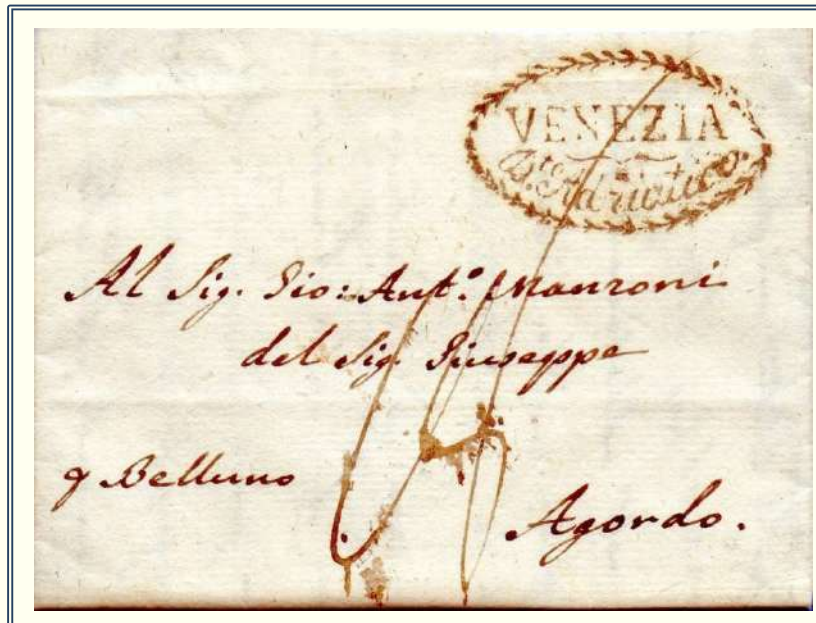 VENEZIA
D.to Adriatico.
Al Sig. Gio: Ant.o Manzoni
del Sig. Giuseppe
p Belluno
Agordo.